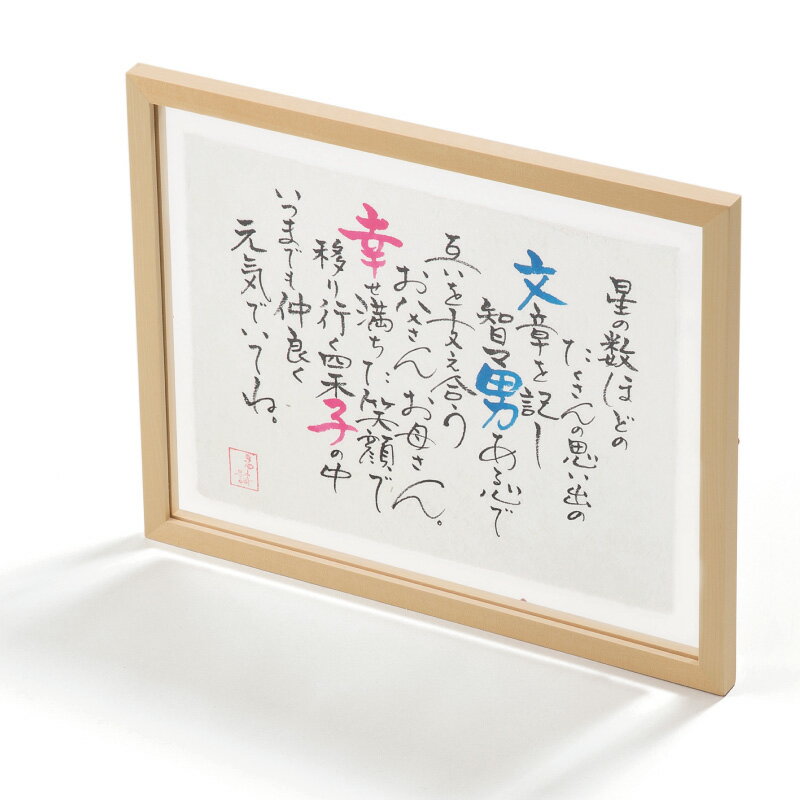 星の数ほどの
たくさんの思い出の
文章を記し
智マ男ある心で
互いを支え合う
お父さんお母さん。
幸せ満ちた笑顔で
移り行く四季子の中
いつまでも仲良く
元気でいてね。